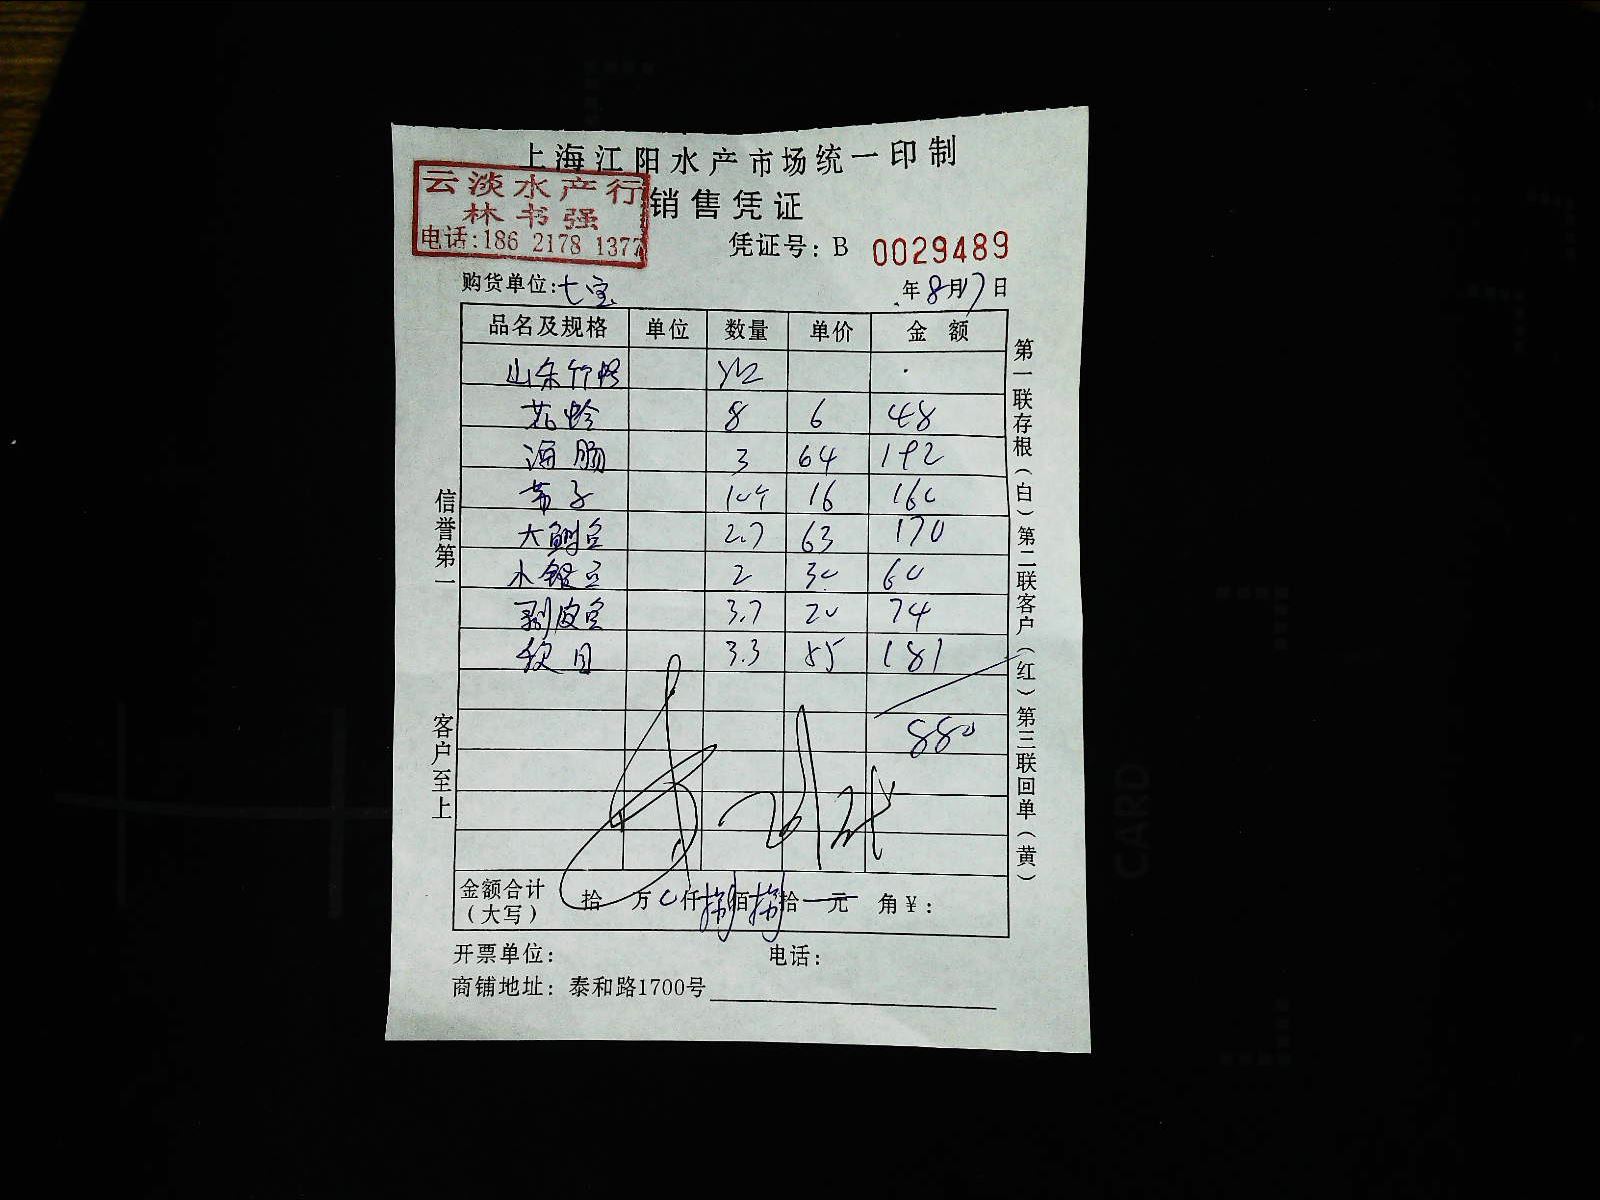 上海江阳水产市场统一印制
云淡水产行
林书强
电话:186 2178 1377
销售凭证
凭证号: B 0029489
购货单位:七宝 年8月7日
品名及规格 单位 数量 单价 金额
山东竹蛏
花蛤 8 6 48
海肠 3 64 192
带子 16 160
大鲍鱼 2.7 63 170
小银鱼 2 30 60
剥皮鱼 3.7 20 74
3.3 55 181
880
金额合计(大写) 拾 万 0仟捌佰捌拾 元 角¥:
开票单位: 电话:
商铺地址: 泰和路1700号
信誉第一 客户至上
第一联存根(白)第二联客户(红)第三联回单(黄)
CARD